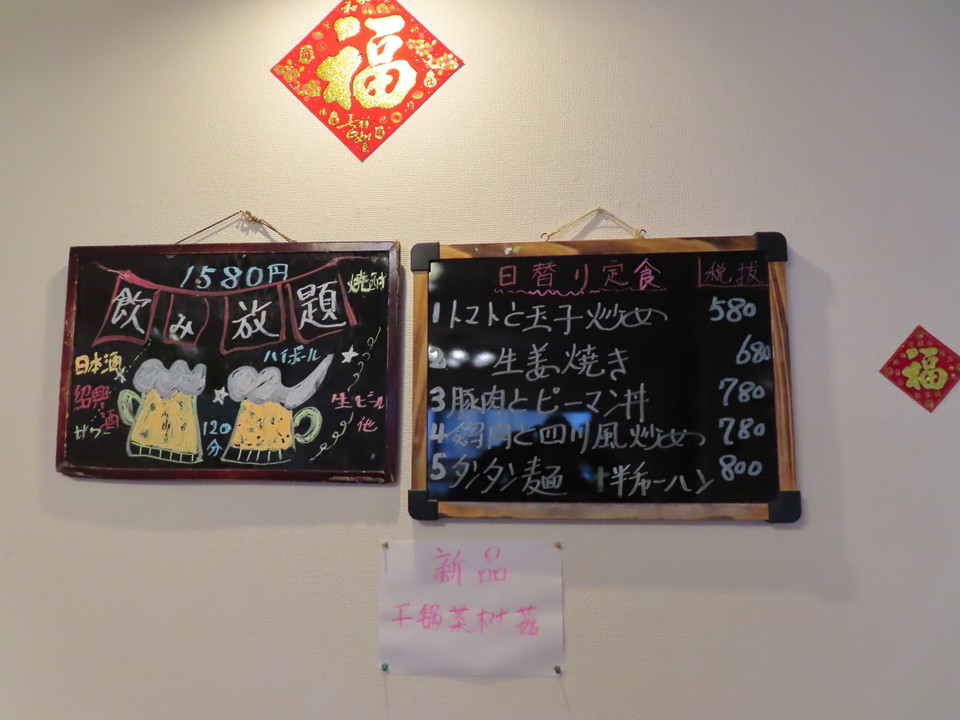 福
1580円
焼酎
飲み放題
ハイボール
日本酒
紹興酒
サワー
120分
生ビール
他
日替り定食 税抜
1 トマトと玉子炒め 580
2 生姜焼き 680
3 豚肉とピーマン丼 780
4 肉と四川風炒め 780
5 タンタン麺 +半チャーハン 800
福
新品
干锅茶树菇